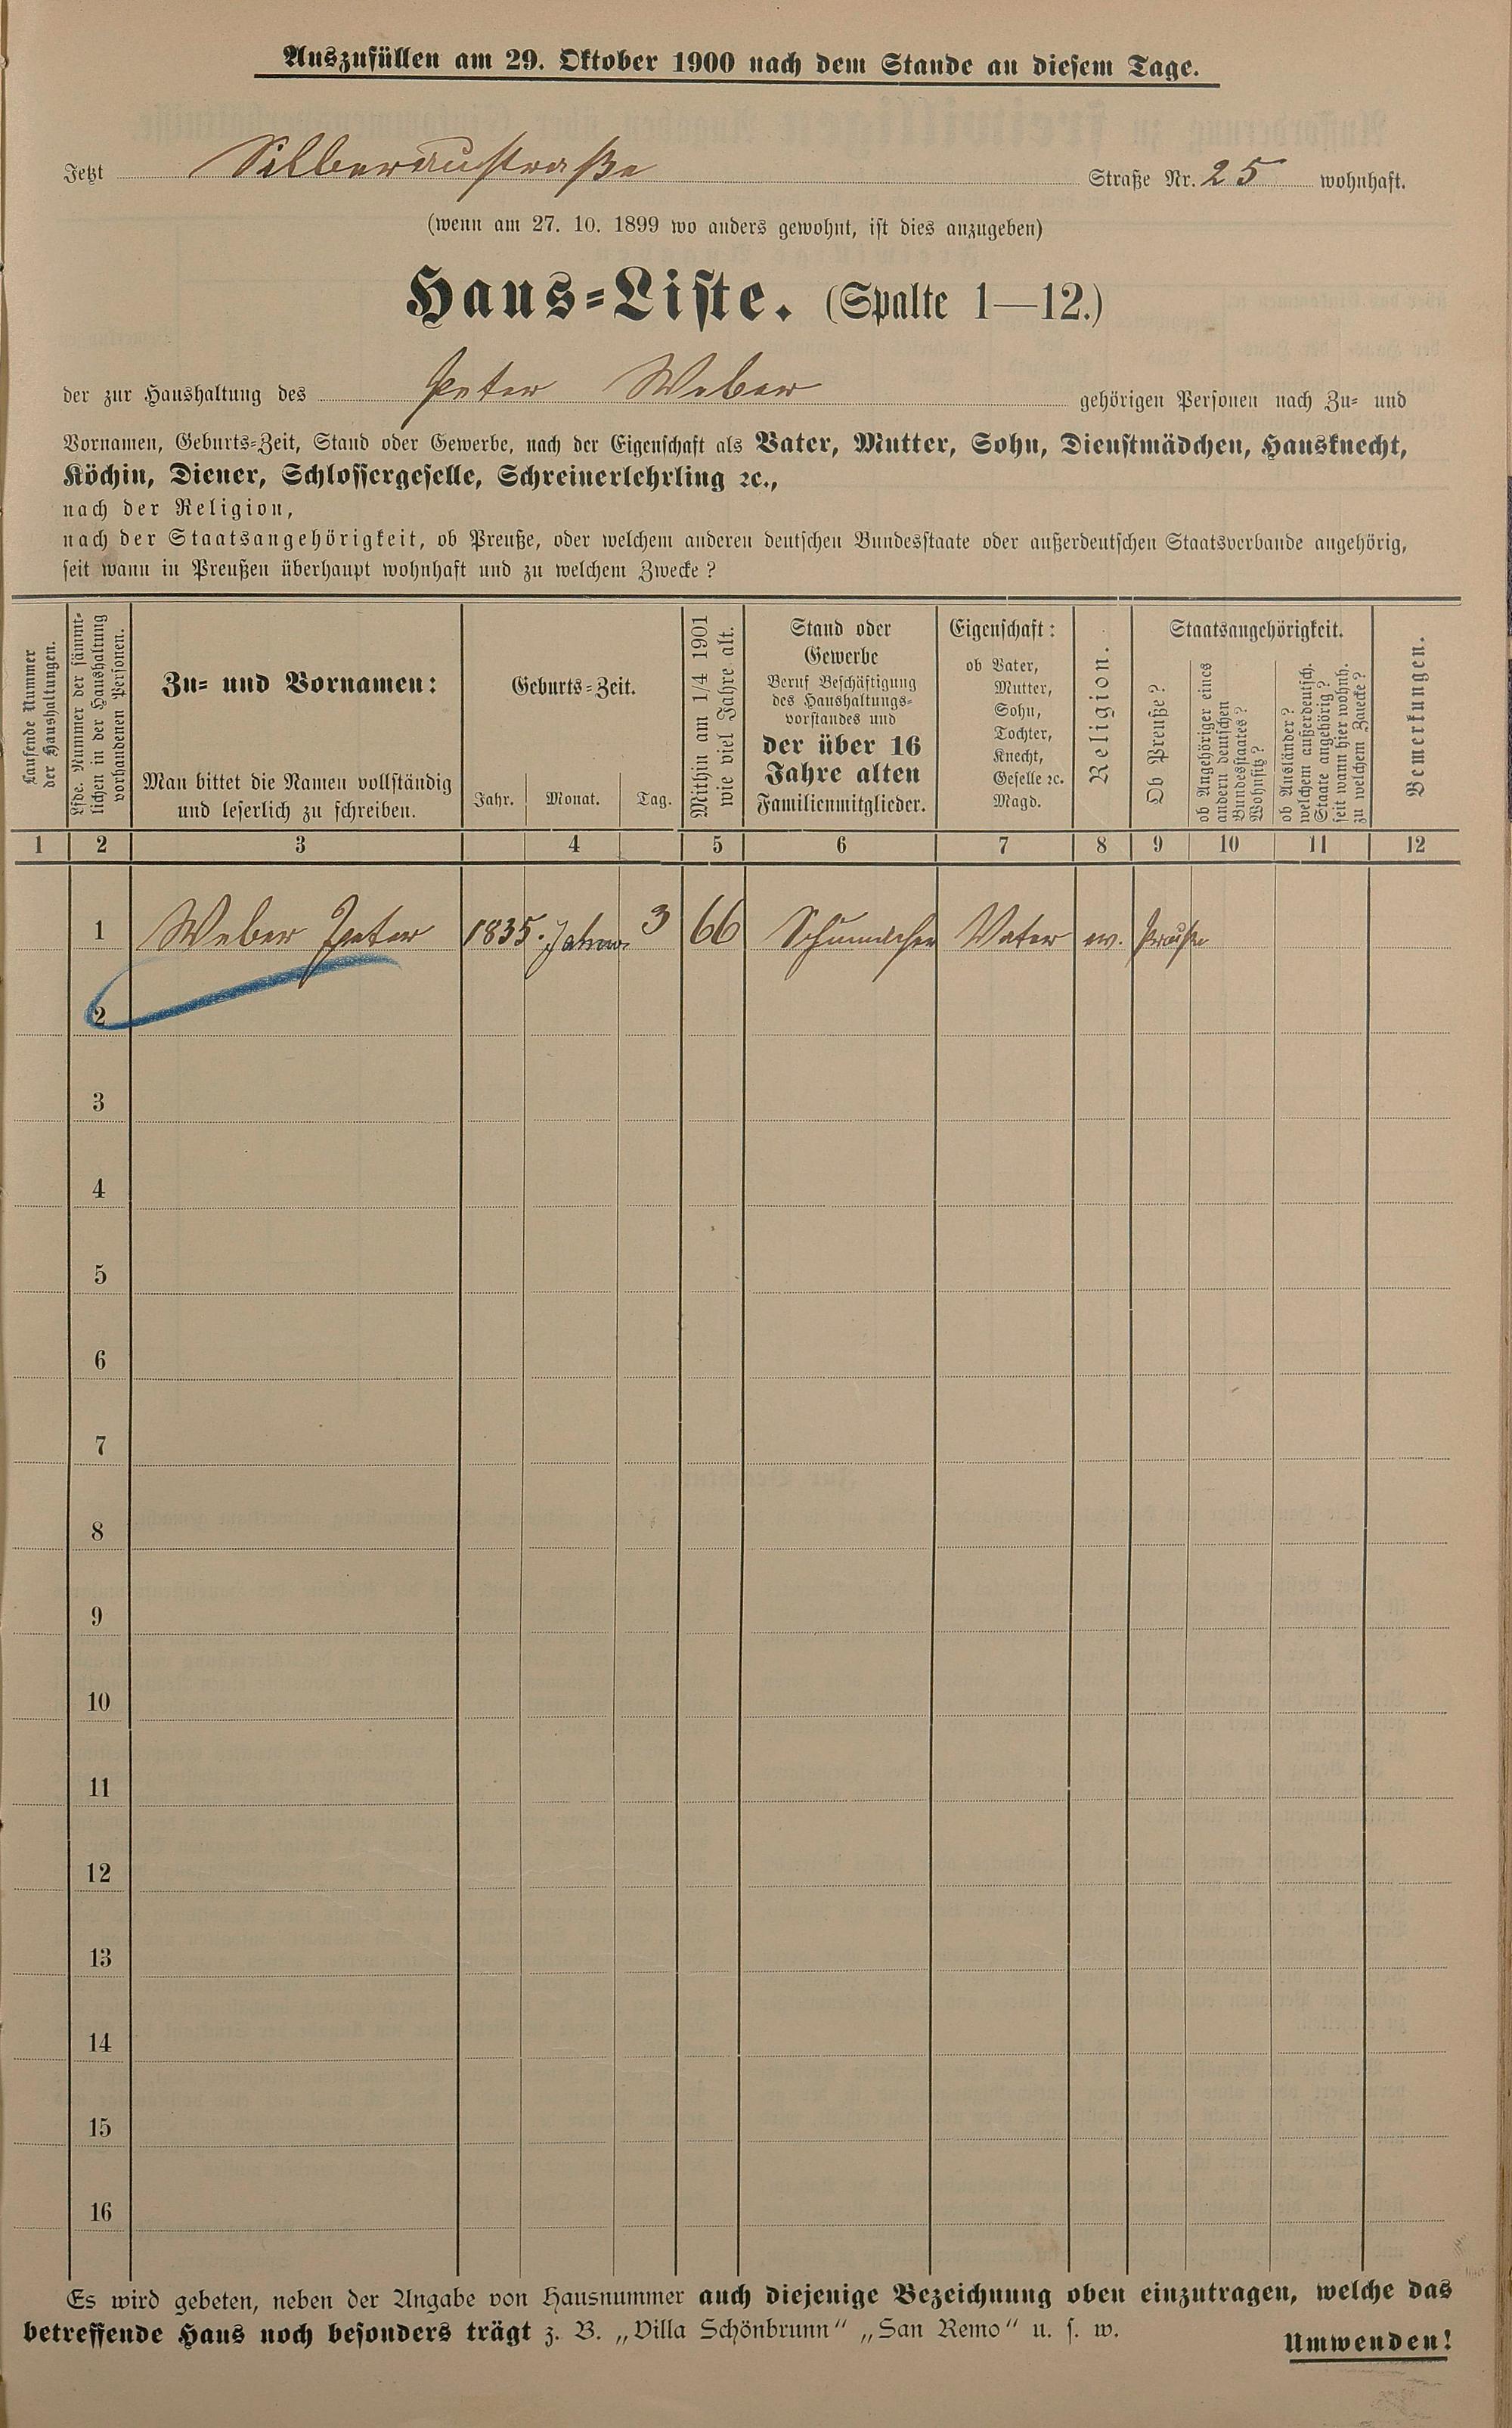 Auszufüllen am 29. Oktober 1900 nach dem Stande an diesem Tage.
Jetzt Silberaustraße Straße Nr. 25 wohnhaft.
(wenn am 27. 10. 1899 wo anders gewohnt, ist dies anzugeben)
Haus-Liste. (Spalte 1—12.)
der zur Haushaltung des Peter Weber gehörigen Personen nach Zu- und
Vornamen, Geburts-Zeit, Stand oder Gewerbe, nach der Eigenschaft als Vater, Mutter, Sohn, Dienstmädchen, Hausknecht,
Köchin, Diener, Schlossergeselle, Schreinerlehrling ꝛc.,
nach der Religion,
nach der Staatsangehörigkeit, ob Preuße, oder welchem anderen deutschen Bundesstaate oder außerdeutschen Staatsverbande angehörig,
seit wann in Preußen überhaupt wohnhaft und zu welchem Zwecke?
Laufende Nummer
der Haushaltungen.
Lfde. Nummer der sämmt-
lichen in der Haushaltung
vorhandenen Personen.
Zu- und Vornamen:
Man bittet die Namen vollständig
und leserlich zu schreiben.
Geburts-Zeit.
Jahr. Monat. Tag.
Mithin am 1/4 1901
wie viel Jahre alt.
Stand oder
Gewerbe
Beruf Beschäftigung
des Haushaltungs-
vorstandes und
der über 16
Jahre alten
Familienmitglieder.
Eigenschaft:
ob Vater,
Mutter,
Sohn,
Tochter,
Knecht,
Geselle ꝛc.
Magd.
Religion.
Staatsangehörigkeit.
Ob Preuße?
ob Angehöriger eines
andern deutschen
Bundesstaates?
Wohnsitz?
ob Ausländer?
welchem außerdeutsch.
Staate angehörig?
seit wann hier wohnh.
zu welchem Zwecke?
Bemerkungen.
1 2 3 4 5 6 7 8 9 10 11 12
1 Weber Peter 1835. 3 66 Schumacher Vater ev. Preuße
2
3
4
5
6
7
8
9
10
11
12
13
14
15
16
Es wird gebeten, neben der Angabe von Hausnummer auch diejenige Bezeichnung oben einzutragen, welche das
betreffende Haus noch besonders trägt z. B. „Villa Schönbrunn“ „San Remo“ u. s. w.
Umwenden!